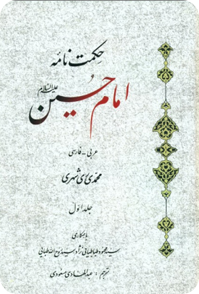 حکمت نامه
امام حسین
علیه‌السلام
عربی - فارسی
محمدی ری شهری
جلد اول
با همکاری
سید محمود طباطبایی نژاد و سید روح الله طبائی
ترجمه : عبدالهادی مسعودی